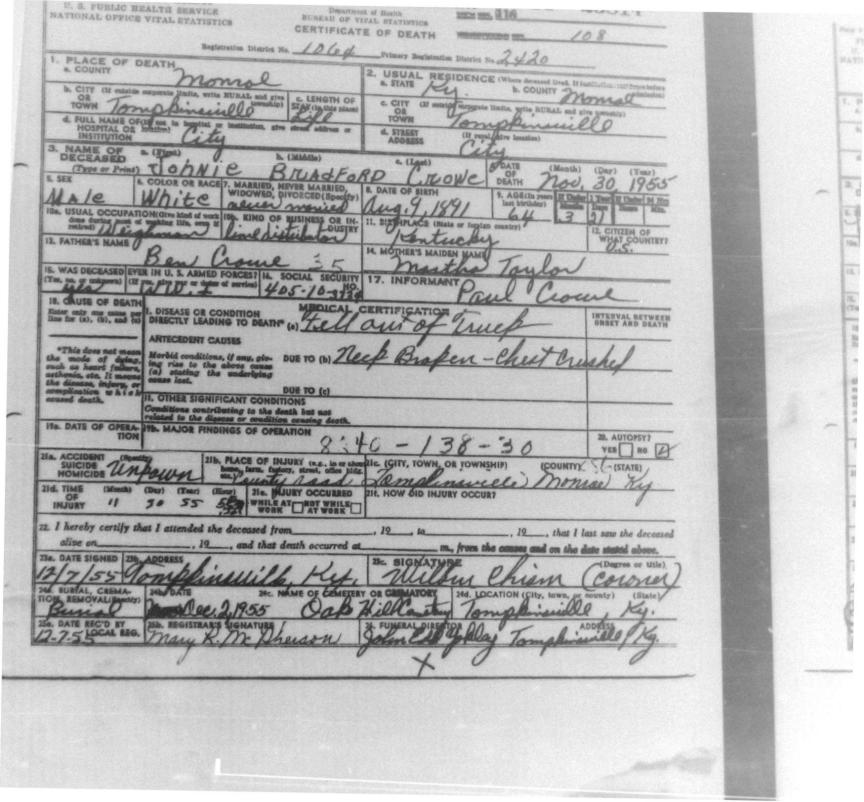 U. S. PUBLIC HEALTH SERVICE
NATIONAL OFFICE VITAL STATISTICS
Department of Health
BUREAU OF VITAL STATISTICS
CERTIFICATE OF DEATH
116
108
Registration District No. 1064 Primary Registration District No. 2420
1. PLACE OF DEATH
a. COUNTY Monroe
2. USUAL RESIDENCE (Where deceased lived. If institution:
a. STATE Ky. b. COUNTY Monroe
b. CITY (If outside corporate limits, write RURAL and give township)
OR TOWN Tompkinsville
c. LENGTH OF STAY (in this place) Life
c. CITY (If outside corporate limits, write RURAL and give township)
OR TOWN Tompkinsville
d. FULL NAME OF (If not in hospital or institution, give street address or location)
HOSPITAL OR INSTITUTION City
d. STREET ADDRESS (If rural, give location) City
3. NAME OF DECEASED (Type or Print)
a. (First) Johnie b. (Middle) Bradford c. (Last) Crowe
DATE OF DEATH (Month) (Day) (Year) Nov. 30, 1955
5. SEX Male
6. COLOR OR RACE White
7. MARRIED, NEVER MARRIED, WIDOWED, DIVORCED (Specify) never married
8. DATE OF BIRTH Aug. 9, 1891
9. AGE (In years last birthday) 64
If Under 1 Year Months 3 Days 21
If Under 24 Hrs. Hours Min.
10a. USUAL OCCUPATION (Give kind of work done during most of working life, even if retired) Weighman
10b. KIND OF BUSINESS OR INDUSTRY lime distributor
11. BIRTHPLACE (State or foreign country) Kentucky
12. CITIZEN OF WHAT COUNTRY? U.S.
13. FATHER'S NAME Ben Crowe 35
14. MOTHER'S MAIDEN NAME Martha Taylor
15. WAS DECEASED EVER IN U. S. ARMED FORCES?
(Yes, no, or unknown) yes (If yes, give war or dates of service) W.W. I
16. SOCIAL SECURITY NO. 405-10-
17. INFORMANT Paul Crowe
18. CAUSE OF DEATH
Enter only one cause per line for (a), (b), and (c)
MEDICAL CERTIFICATION
INTERVAL BETWEEN ONSET AND DEATH
I. DISEASE OR CONDITION
DIRECTLY LEADING TO DEATH* (a) Fell out of Truck
*This does not mean the mode of dying, such as heart failure, asthenia, etc. It means the disease, injury, or complication which caused death.
ANTECEDENT CAUSES
Morbid conditions, if any, giving rise to the above cause (a) stating the underlying cause last.
DUE TO (b) Neck Broken - Chest Crushed
DUE TO (c)
II. OTHER SIGNIFICANT CONDITIONS
Conditions contributing to the death but not related to the disease or condition causing death.
19a. DATE OF OPERATION
19b. MAJOR FINDINGS OF OPERATION
8340 - 138 - 30
20. AUTOPSY?
YES NO
21a. ACCIDENT SUICIDE HOMICIDE (Specify) Unknown
21b. PLACE OF INJURY (e.g., in or about home, farm, factory, street, office bldg., etc.) County road
21c. (CITY, TOWN, OR TOWNSHIP) (COUNTY) (STATE)
Tompkinsville Monroe Ky
21d. TIME OF INJURY (Month) (Day) (Year) (Hour)
11 30 55
21e. INJURY OCCURRED
WHILE AT WORK NOT WHILE AT WORK
21f. HOW DID INJURY OCCUR?
22. I hereby certify that I attended the deceased from , 19 , to , 19 , that I last saw the deceased
alive on , 19 , and that death occurred at m., from the causes and on the date stated above.
23a. DATE SIGNED 12/7/55
23b. ADDRESS Tompkinsville, Ky.
23c. SIGNATURE (Degree or title) Wilbur Chism (coroner)
24a. BURIAL, CREMATION, REMOVAL (Specify) Burial
24b. DATE Dec. 2, 1955
24c. NAME OF CEMETERY OR CREMATORY Oak Hill
24d. LOCATION (City, town, or county) (State) Tompkinsville, Ky.
25a. DATE REC'D BY LOCAL REG. 12-7-55
25b. REGISTRAR'S SIGNATURE Mary R. McPherson
FUNERAL DIRECTOR ADDRESS
John Tompkinsville, Ky.
X